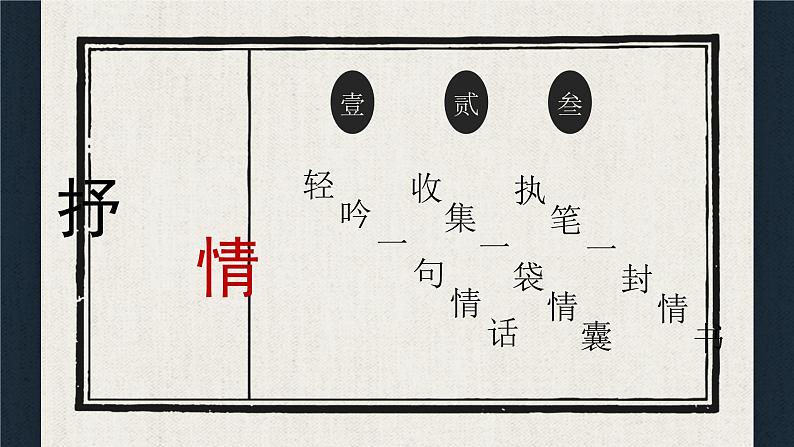 抒情
壹
轻吟一句情话
贰
收集一袋情囊
叁
执笔一封情书